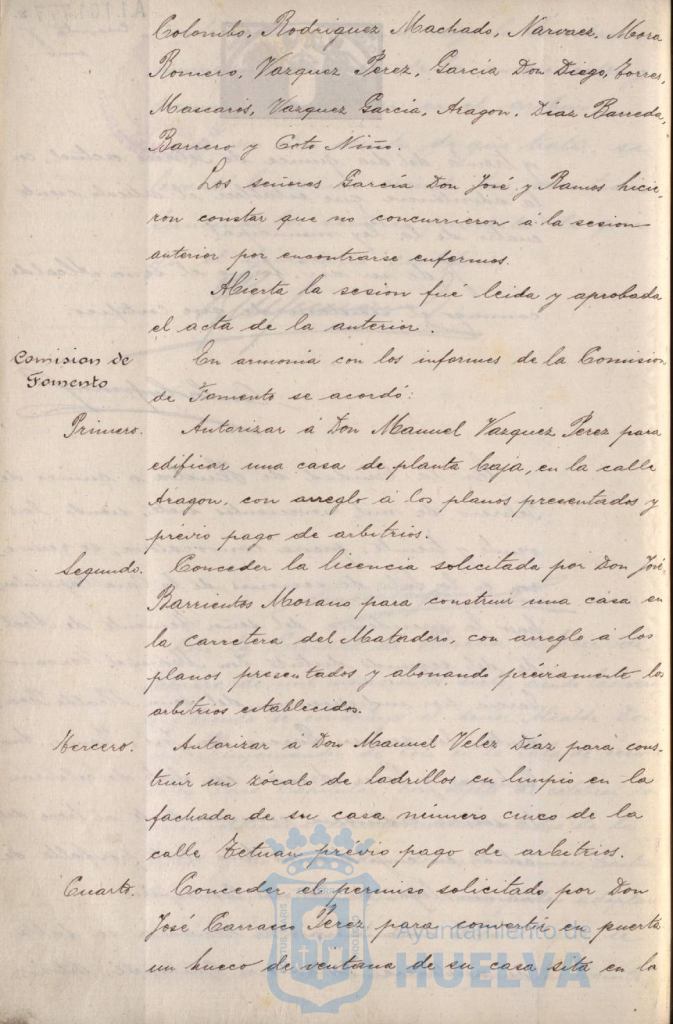 Colombo, Rodriguez Machado, Narvaez, Mora
Romero, Vazquez Perez, García Don Diego, Torres,
Mascarós, Vazquez García, Aragon, Díaz Barreda,
Barrero y Coto Niño.
Los señores García Don José y Ramos hicie-
ron constar que no concurrieron á la sesion
anterior por encontrarse enfermos.
Abierta la sesion fué leida y aprobada
el acta de la anterior.
Comision de Fomento
En armonía con los informes de la Comision
de Fomento se acordó:
Primero. Autorizar á Don Manuel Vazquez Perez para
edificar una casa de planta baja, en la calle
Aragon, con arreglo á los planos presentados y
prévio pago de arbitrios.
Segundo. Conceder la licencia solicitada por Don José
Barrientos Morano para construir una casa en
la carretera del Matadero, con arreglo á los
planos presentados y abonando préviamente los
arbitrios establecidos.
Tercero. Autorizar á Don Manuel Velez Díaz para cons-
truir un zócalo de ladrillos en limpio en la
fachada de su casa número cinco de la
calle Tetuan prévio pago de arbitrios.
Cuarto. Conceder el permiso solicitado por Don
José Carrasco Perez para convertir en puerta
un hueco de ventana de su casa sita en la
Ayuntamiento de
HUELVA